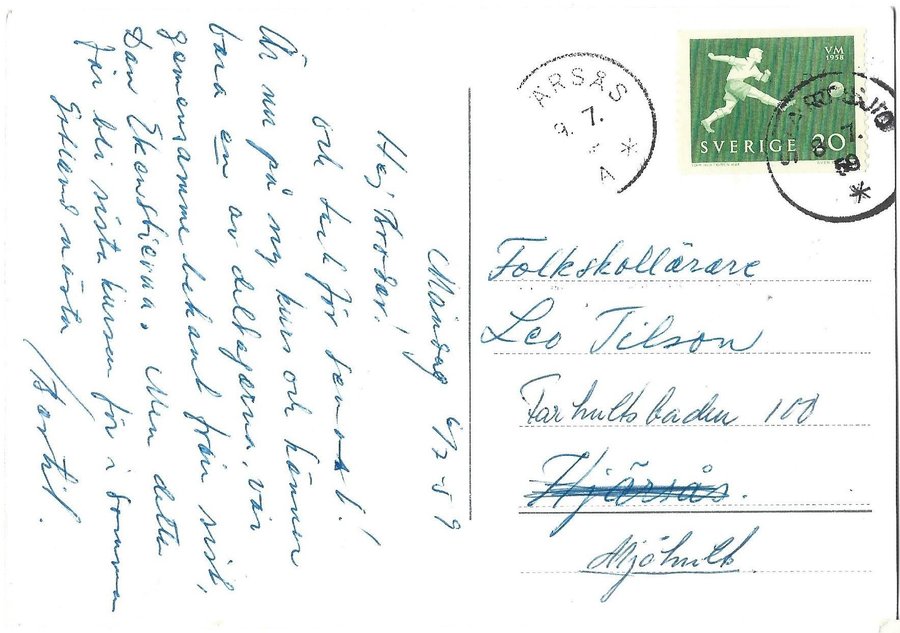 Måndag 6/7 -59
Hej Broder!
och tack för senast!
Är nu på ny kurs och känner
bara en av deltagarna, vår
gemensamme bekant från sist,
Dan Ekenstierna. Men detta
får bli sista kursen för i sommar
Gotland nästa
Bertil.
ÄRSÅS
9. 7.
* A *
VM
1958
SVERIGE 20
8 7.
59
*
Folkskollärare
Leo Tilson
Farhultsbaden 100
Hjärsås.
Mjöhult.